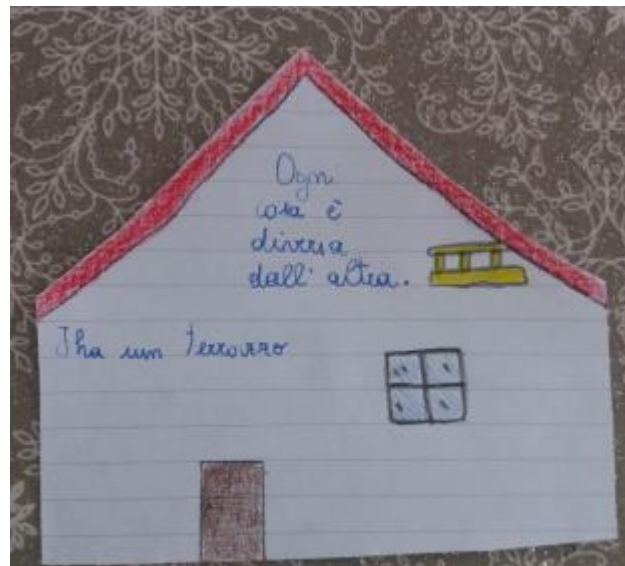 Ogni
cosa è
diversa
dall'altra.
I ha un terrazzo